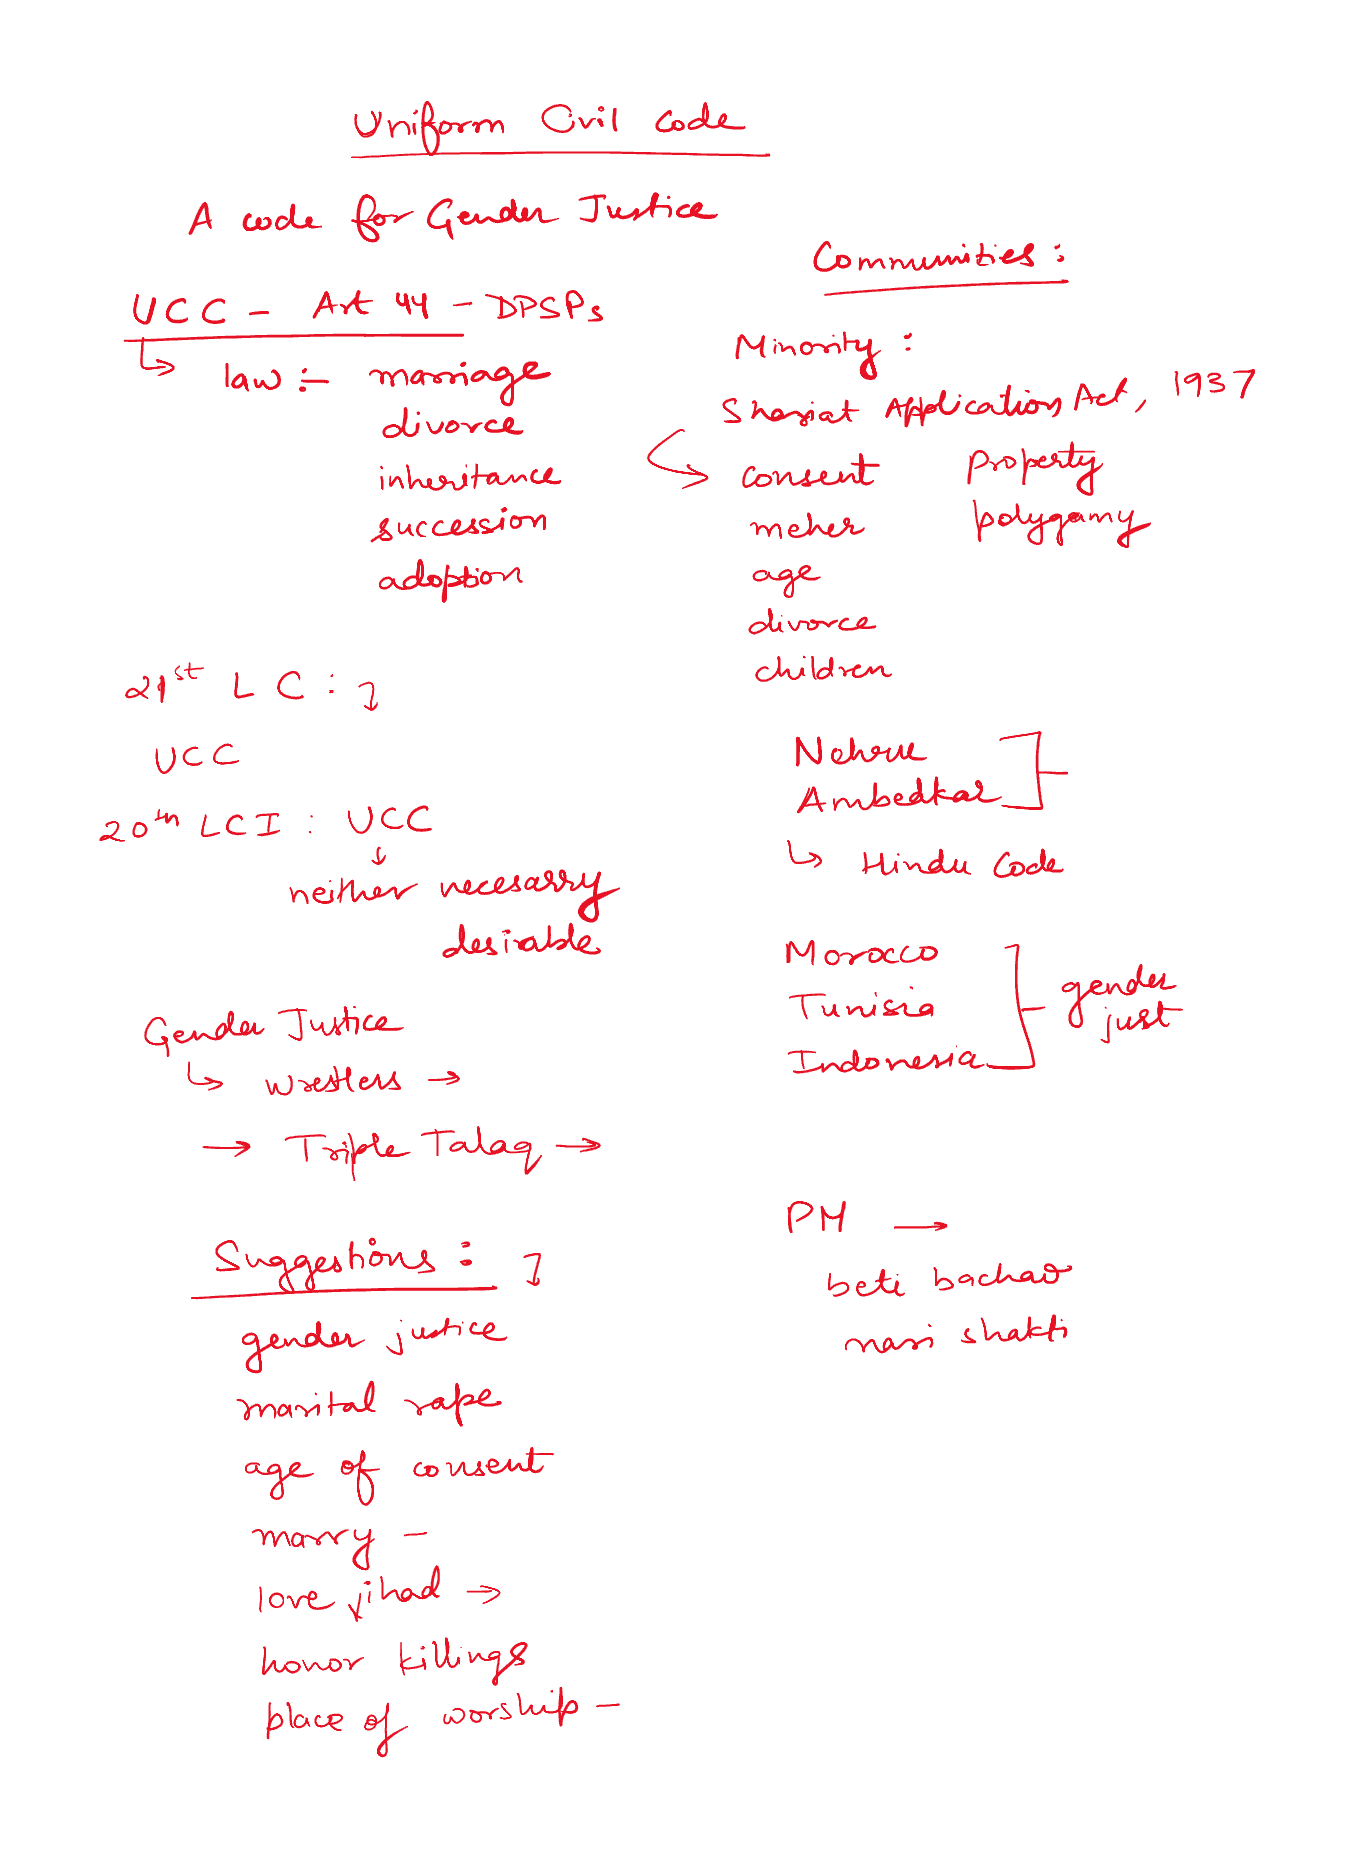 Uniform Civil Code
A code for Gender Justice
UCC - Art 44 - DPSPs
law :- marriage
divorce
inheritance
succession
adoption
21st LC :
UCC
20th LCI : UCC
neither necesarry
desirable
Gender Justice
↳ wrestlers →
→ Triple Talaq →
Suggestions :
gender justice
marital rape
age of consent
marry -
love jihad →
honor killings
place of worship -
Communities :
Minority :
Shariat Application Act, 1937
consent property
meher polygamy
age
divorce
children
Nehru
Ambedkar
↳ Hindu Code
Morocco
Tunisia
Indonesia
gender
just
PM →
beti bachao
nari shakti